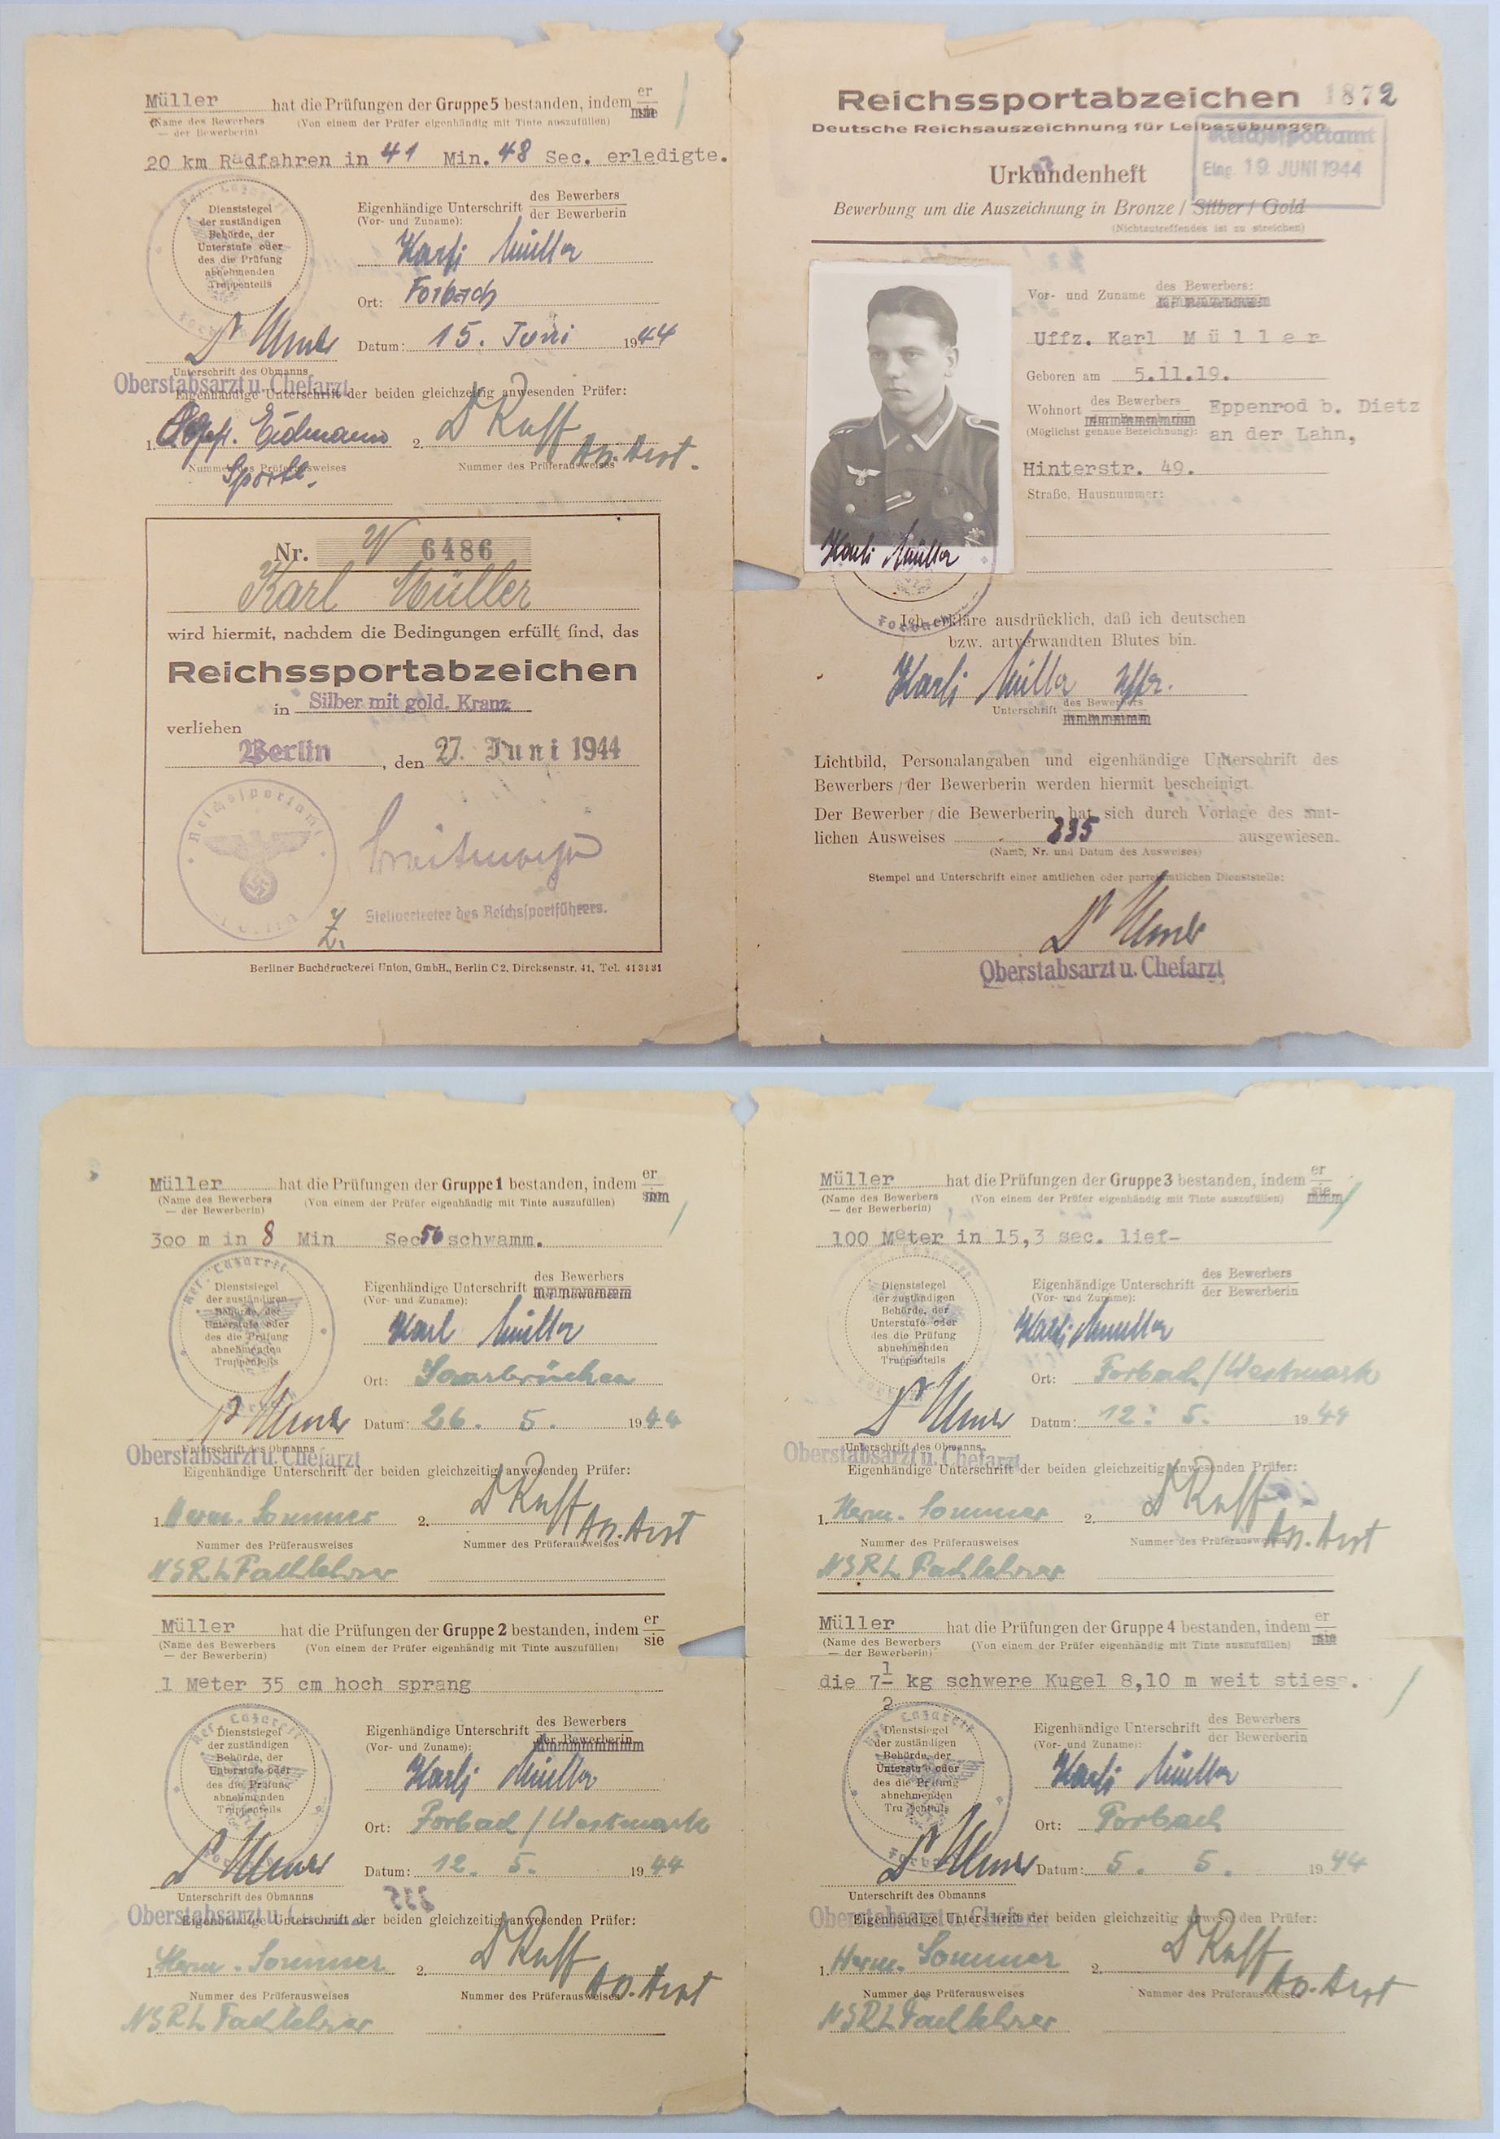 Müller hat die Prüfungen der Gruppe 5 bestanden, indem er
(Name des Bewerbers (Von einem der Prüfer eigenhändig mit Tinte auszufüllen) sie
— der Bewerberin)
20 km Radfahren in 41 Min. 48 Sec. erledigte.
Dienstsiegel
der zuständigen
Behörde, der
Unterstufe oder
des die Prüfung
abnehmenden
Truppenteils
Eigenhändige Unterschrift des Bewerbers
der Bewerberin
(Vor- und Zuname):
Karl Müller
Ort: Forbach
Datum: 15. Juni 1944
Unterschrift des Obmanns
Oberstabsarzt u. Chefarzt
Eigenhändige Unterschrift der beiden gleichzeitig anwesenden Prüfer:
1. Eidmann 2. Dr Ruff
Nummer des Prüferausweises Nummer des Prüferausweises
Nr. W 6486
Karl Müller
wird hiermit, nachdem die Bedingungen erfüllt sind, das
Reichssportabzeichen
in Silber mit gold. Kranz
verliehen
Berlin, den 27. Juni 1944
Reichssportamt
Berlin
Z.
Stellvertreter des Reichssportführers.
Berliner Buchdruckerei Union, GmbH., Berlin C2, Dircksenstr. 41, Tel. 413131
Reichssportabzeichen 1872
Deutsche Reichsauszeichnung für Leibesübungen
Reichssportamt
Eing. 19. JUNI 1944
Urkundenheft
Bewerbung um die Auszeichnung in Bronze / Silber / Gold
(Nichtzutreffendes ist zu streichen)
Vor- und Zuname des Bewerbers:
der Bewerberin:
Uffz. Karl Müller
Geboren am 5.11.19.
Wohnort des Bewerbers Eppenrod b. Dietz
(Möglichst genaue Bezeichnung): an der Lahn,
Hinterstr. 49.
Straße, Hausnummer:
Karl Müller
Forbach
Ich erkläre ausdrücklich, daß ich deutschen
bzw. artverwandten Blutes bin.
Karl Müller Uffz.
Unterschrift des Bewerbers
Lichtbild, Personalangaben und eigenhändige Unterschrift des
Bewerbers / der Bewerberin werden hiermit bescheinigt.
Der Bewerber / die Bewerberin hat sich durch Vorlage des amt-
lichen Ausweises 235 ausgewiesen.
(Name, Nr. und Datum des Ausweises)
Stempel und Unterschrift einer amtlichen oder parteiamtlichen Dienststelle:
Oberstabsarzt u. Chefarzt
Müller hat die Prüfungen der Gruppe 1 bestanden, indem er
(Name des Bewerbers (Von einem der Prüfer eigenhändig mit Tinte auszufüllen)
— der Bewerberin)
300 m in 8 Min Sec 56 schwamm.
Res. Lazarett
Dienstsiegel
der zuständigen
Behörde, der
Unterstufe oder
des die Prüfung
abnehmenden
Truppenteils
Eigenhändige Unterschrift des Bewerbers
(Vor- und Zuname):
Karl Müller
Ort: Saarbrücken
Datum: 26. 5. 1944
Unterschrift des Obmanns
Oberstabsarzt u. Chefarzt
Eigenhändige Unterschrift der beiden gleichzeitig anwesenden Prüfer:
1. Herm. Sommer 2. Dr Ruff
Ass. Arzt
Nummer des Prüferausweises Nummer des Prüferausweises
NSRL Fachlehrer
Müller hat die Prüfungen der Gruppe 2 bestanden, indem er
(Name des Bewerbers (Von einem der Prüfer eigenhändig mit Tinte auszufüllen) sie
— der Bewerberin)
1 Meter 35 cm hoch sprang
Res. Lazarett
Dienstsiegel
der zuständigen
Behörde, der
Unterstufe oder
des die Prüfung
abnehmenden
Truppenteils
Eigenhändige Unterschrift des Bewerbers
der Bewerberin
(Vor- und Zuname):
Karl Müller
Ort: Forbach / Westmark
Datum: 12. 5. 1944
Unterschrift des Obmanns
Oberstabsarzt u. Chefarzt
Eigenhändige Unterschrift der beiden gleichzeitig anwesenden Prüfer:
1. Herm. Sommer 2. Dr Ruff
Ass. Arzt
Nummer des Prüferausweises Nummer des Prüferausweises
NSRL Fachlehrer
Müller hat die Prüfungen der Gruppe 3 bestanden, indem er
(Name des Bewerbers (Von einem der Prüfer eigenhändig mit Tinte auszufüllen) sie
— der Bewerberin)
100 Meter in 15,3 sec. lief-
Dienstsiegel
der zuständigen
Behörde, der
Unterstufe oder
des die Prüfung
abnehmenden
Truppenteils
Eigenhändige Unterschrift des Bewerbers
der Bewerberin
(Vor- und Zuname):
Karl Müller
Ort: Forbach / Westmark
Datum: 12. 5. 1944
Unterschrift des Obmanns
Oberstabsarzt u. Chefarzt
Eigenhändige Unterschrift der beiden gleichzeitig anwesenden Prüfer:
1. Herm. Sommer 2. Dr Ruff
Ass. Arzt
Nummer des Prüferausweises Nummer des Prüferausweises
NSRL Fachlehrer
Müller hat die Prüfungen der Gruppe 4 bestanden, indem er
(Name des Bewerbers (Von einem der Prüfer eigenhändig mit Tinte auszufüllen) sie
— der Bewerberin)
die 7 1/2 kg schwere Kugel 8,10 m weit stiess.
Res. Lazarett
Dienstsiegel
der zuständigen
Behörde, der
Unterstufe oder
des die Prüfung
abnehmenden
Truppenteils
Forbach
Eigenhändige Unterschrift des Bewerbers
der Bewerberin
(Vor- und Zuname):
Karl Müller
Ort: Forbach
Datum: 5. 5. 1944
Unterschrift des Obmanns
Oberstabsarzt u. Chefarzt
Eigenhändige Unterschrift der beiden gleichzeitig anwesenden Prüfer:
1. Herm. Sommer 2. Dr Ruff
Ass. Arzt
Nummer des Prüferausweises Nummer des Prüferausweises
NSRL Fachlehrer